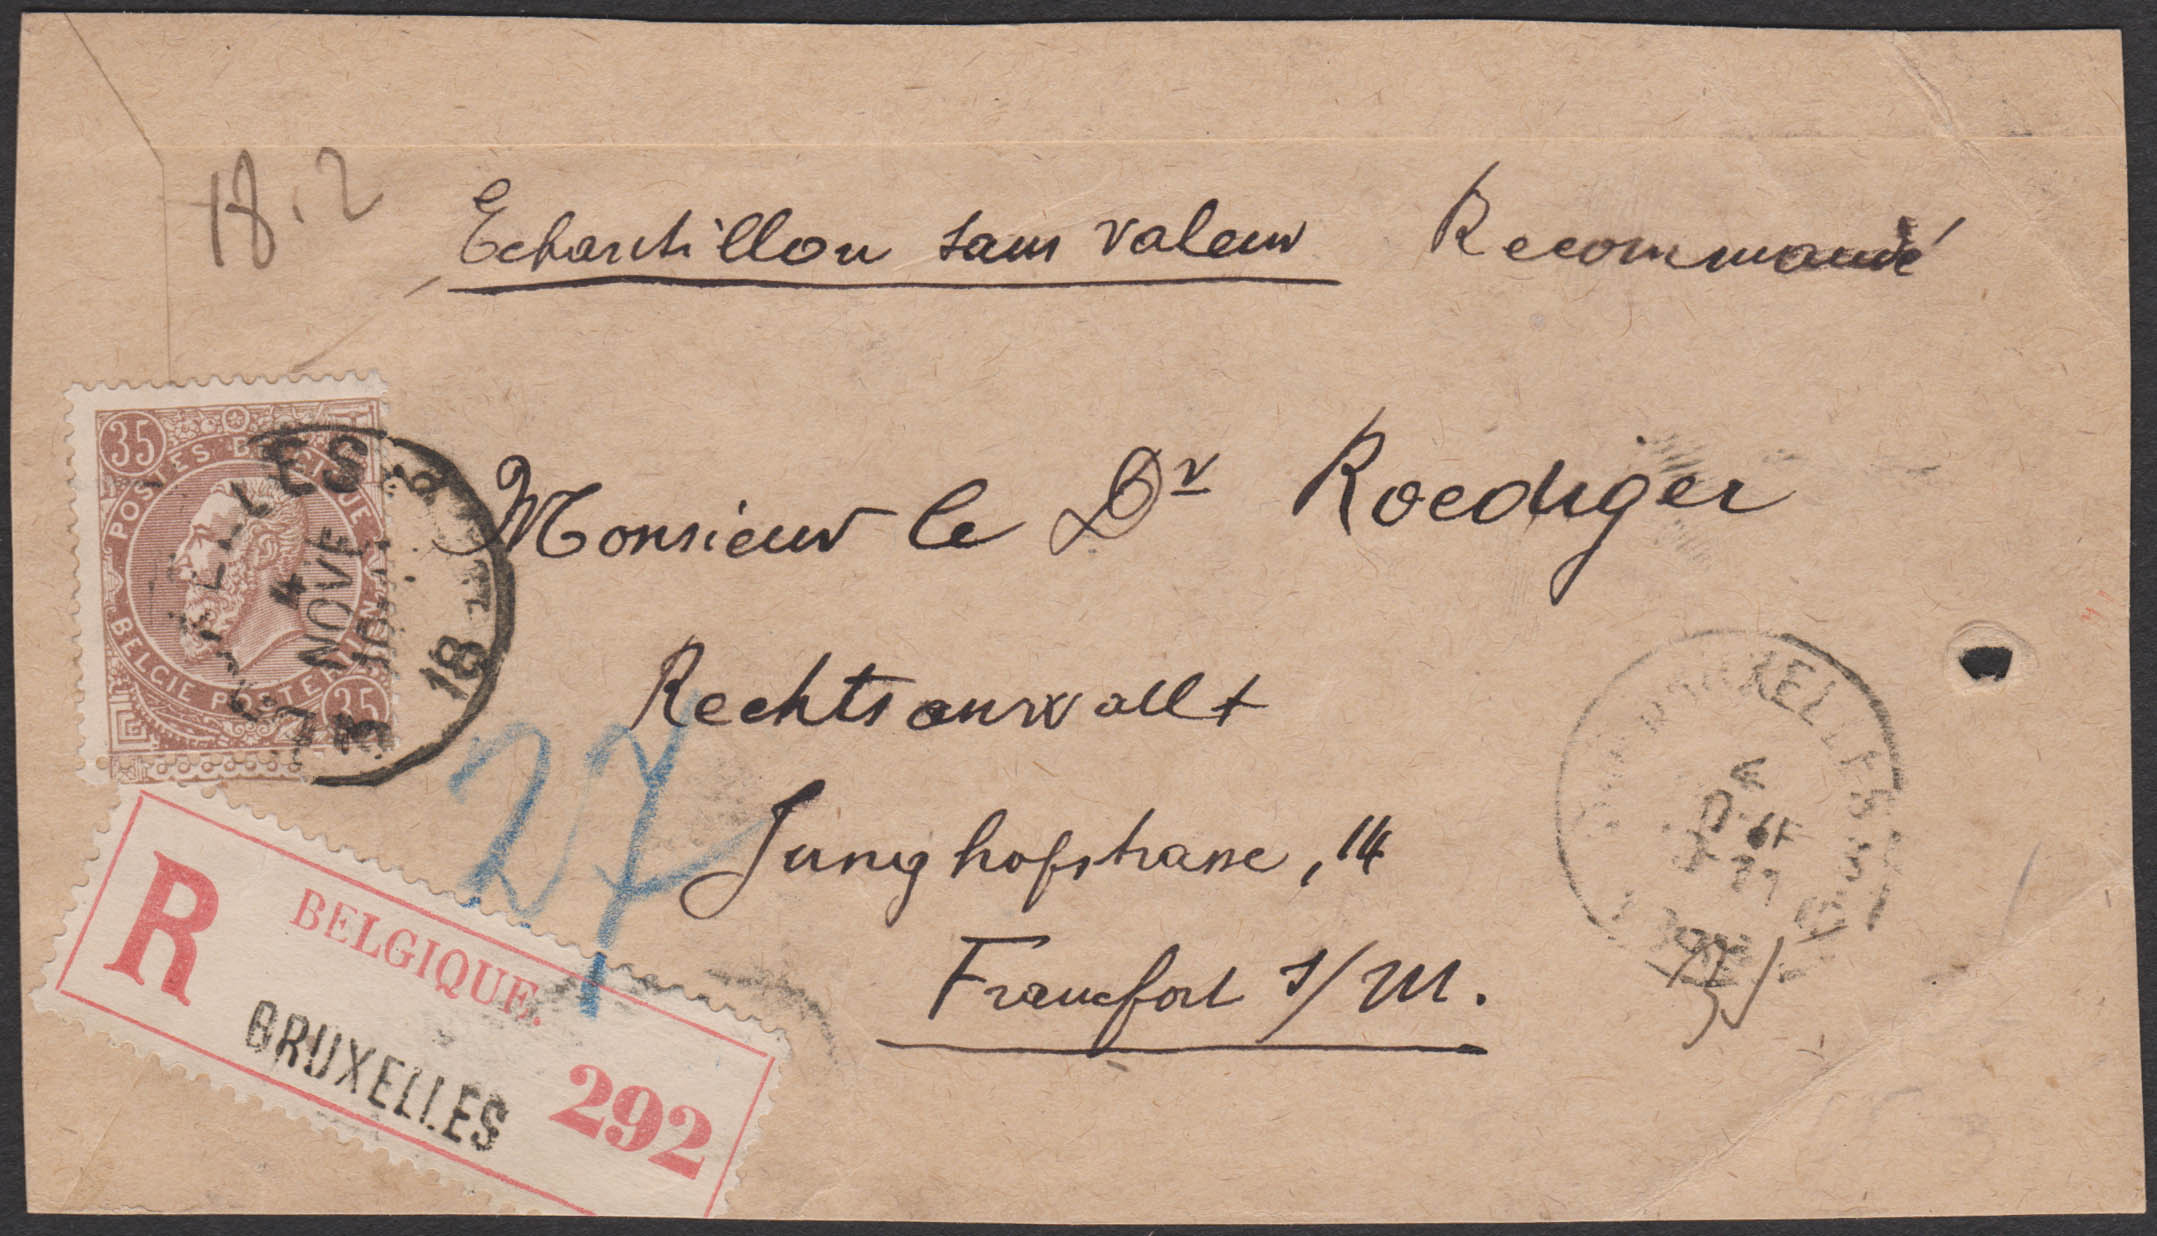 18.2
Echantillon sans valeur Recommandé
35
POSTES BELGIQUE
BELGIE POSTERIJEN
35
4
NOVE
18
Monsieur le Dr Roediger
Rechtsanwallt
27
Junghofstrasse, 14
Francfort s/M.
BRUXELLES
R BELGIQUE.
BRUXELLES 292